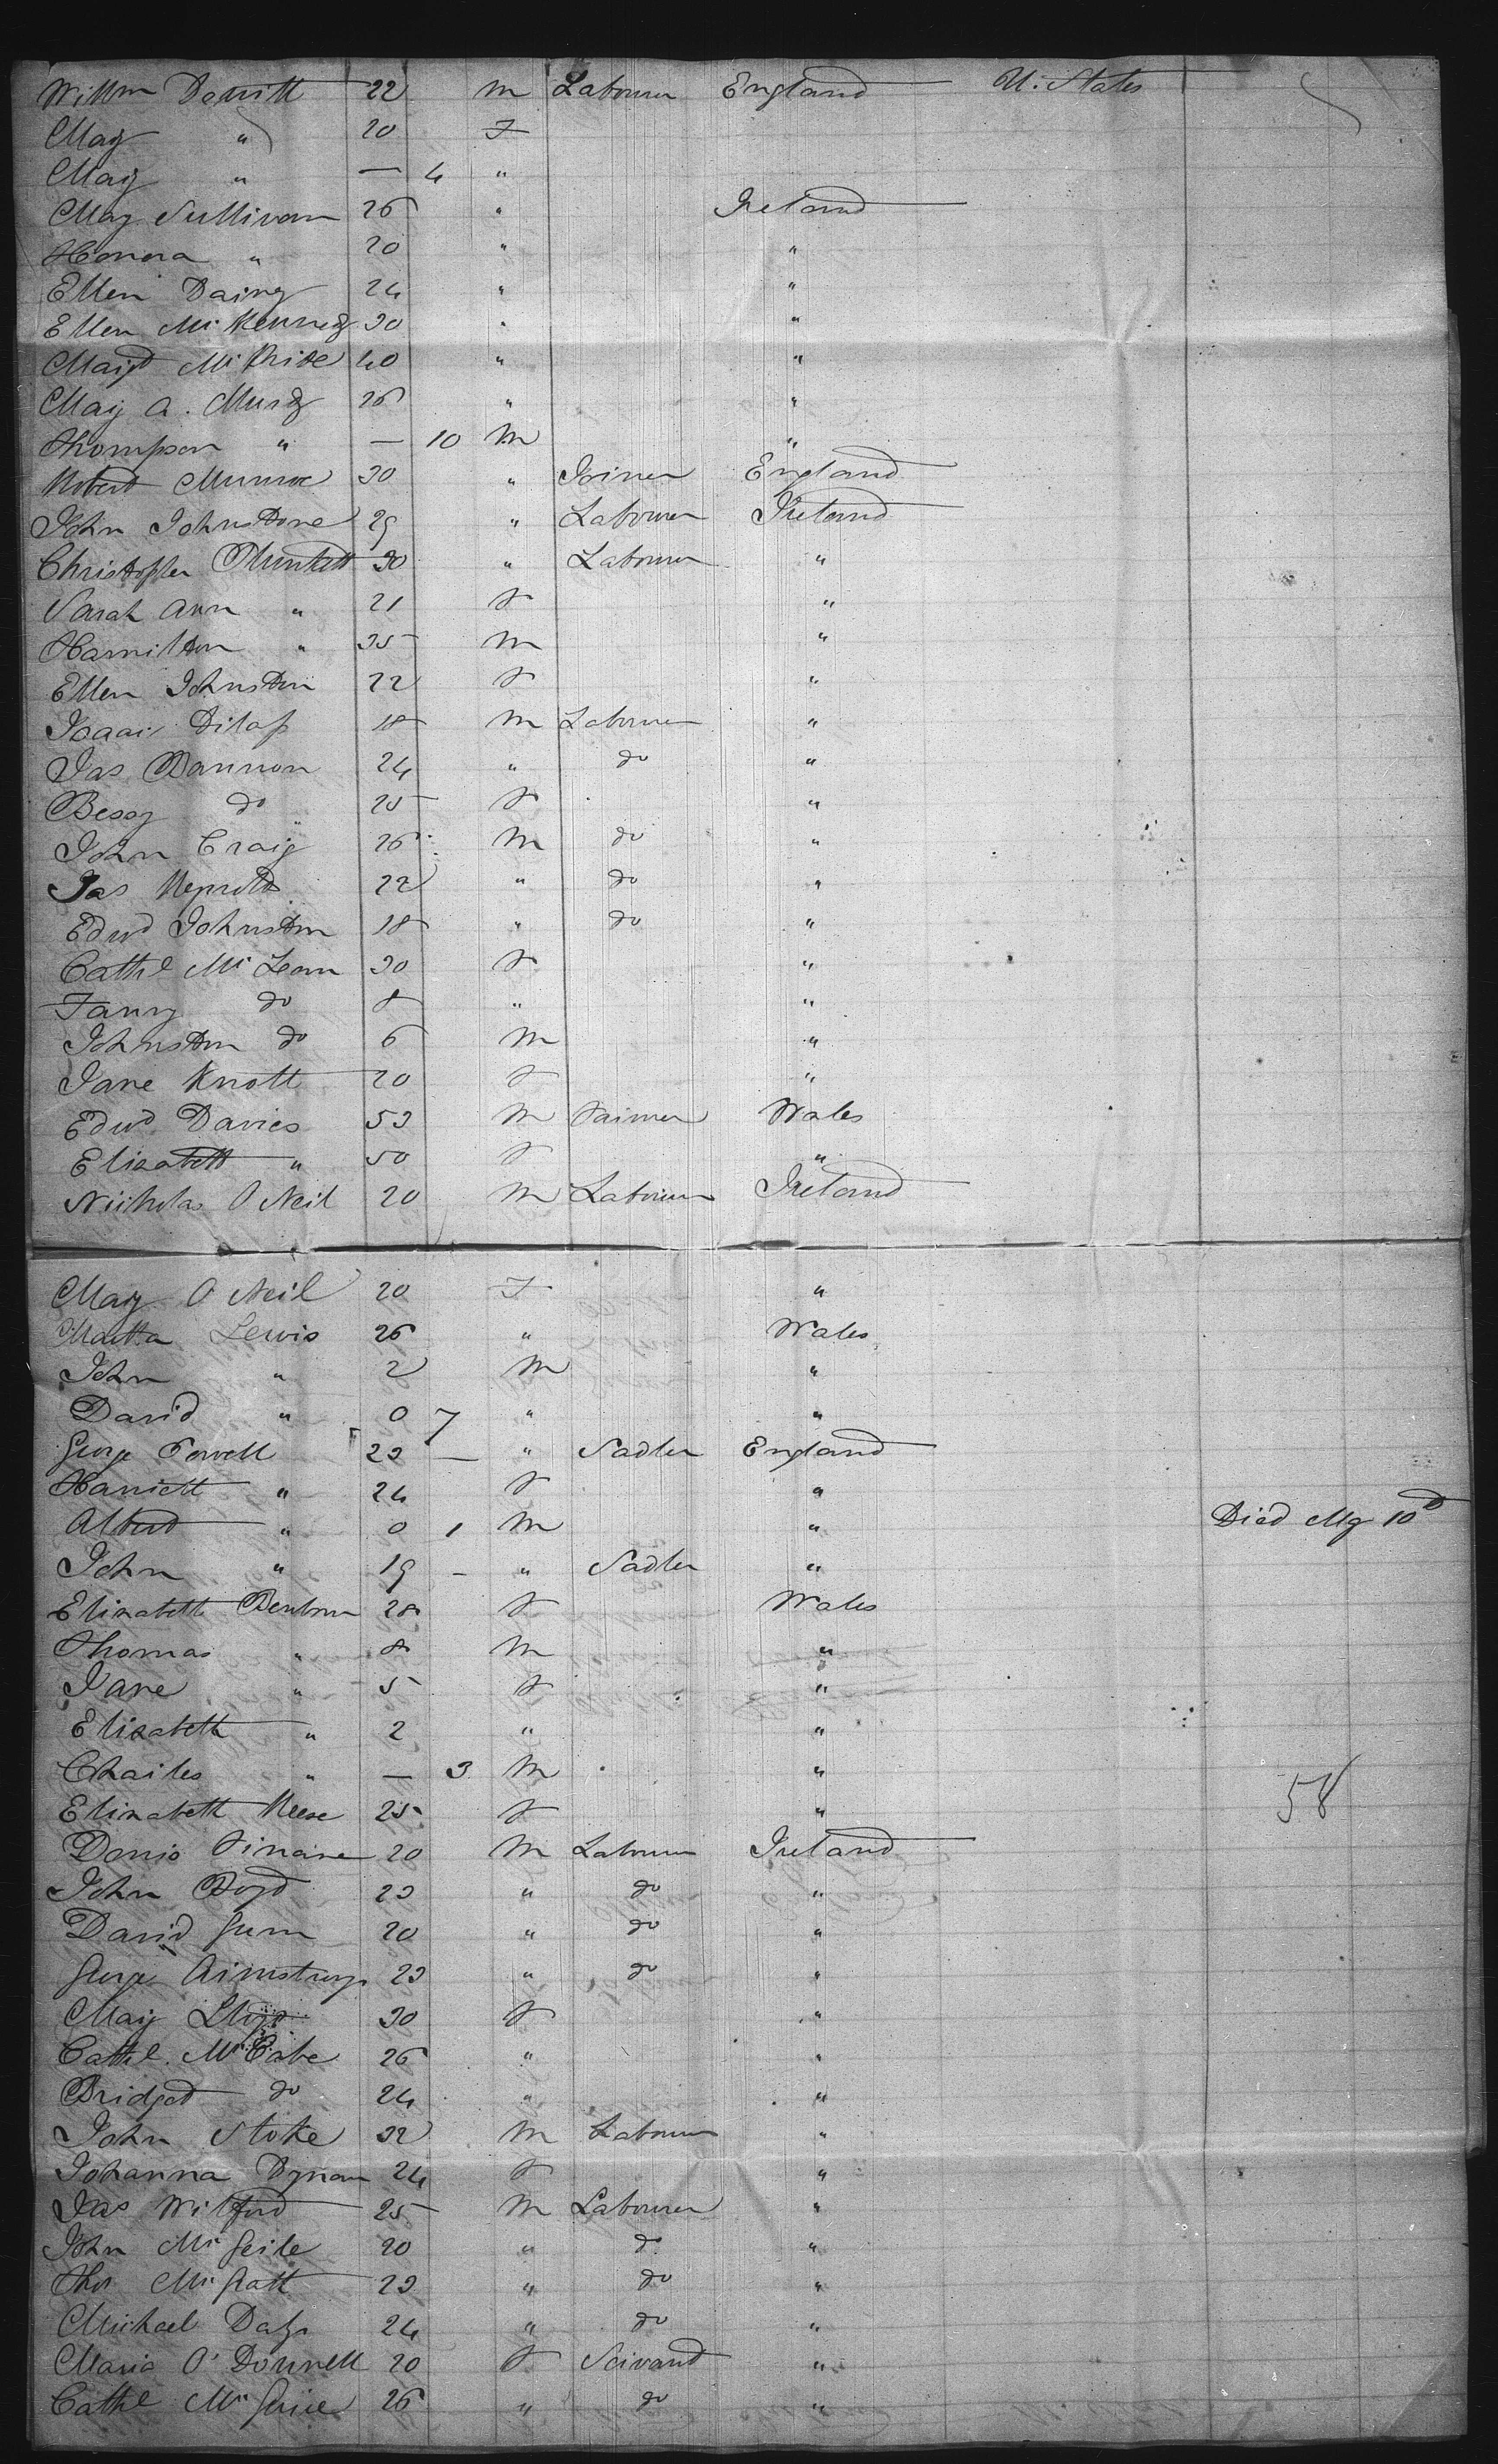 Willm Devitt 22 m Labourer England U. States
Mary " 20 F
Mary " — 4 "
Mary Sullivan 26 " Ireland
Honora " 20 " "
Ellen Dainy 24 " "
Ellen Mc Kennedy 30 " "
Margt Mc Bride 40 " "
Mary A. Murdy 26 " "
Thompson " — 10 m "
Robert Munroe 30 " Joiner England
John Johnstone 29 " Labourer Ireland
Christopher Plunkett 30 " Labourer "
Sarah Ann " 21 F "
Hamilton " 35 m "
Ellen Johnston 22 F "
Isaac 18 m Labourer "
Jas Bannon 24 " do "
Bessy do 25 F "
John Craig 26 m do "
Jas Reynolds 22 " do "
Edwd Johnston 18 " do "
Cathe Mc Lean 30 F "
Fanny do 8 " "
Johnston do 6 m "
Jane Knott 20 F "
Edwd Davies 53 m Farmer Wales
Elizabeth " 50 F "
Nicholas O Neil 20 m Labourer Ireland
Mary O Neil 20 F "
Martha Lewis 26 " Wales
John " 2 m "
David " 0 7 " "
George Powell 23 — " Sadler England
Harriett " 24 F "
Albert " 0 1 m " Died My 10d
John " 19 – " Sadler "
Elizabeth 28 F Wales
Thomas " 8 m "
Jane " 5 F "
Elizabeth " 2 " "
Charles " — 3 m "
Elizabeth Reese 25 F " 58
Denis Finane 20 m Labourer Ireland
John Boyd 23 " do "
David Gunn 20 " do "
George Armstrong 23 " do "
Mary Lloyd 30 F "
Cathe. Mc Cabe 26 " "
Bridget do 24 " "
John Stoke 32 m Labourer "
Johanna Dynan 24 F "
Jas Wilford 25 m Labourer "
John Mc 20 " d "
Thos Mc Gratt 23 " do "
Michael Daly 24 " do "
Maria O' Donnell 20 F Servant "
Cathe Mc Guire 26 " do "